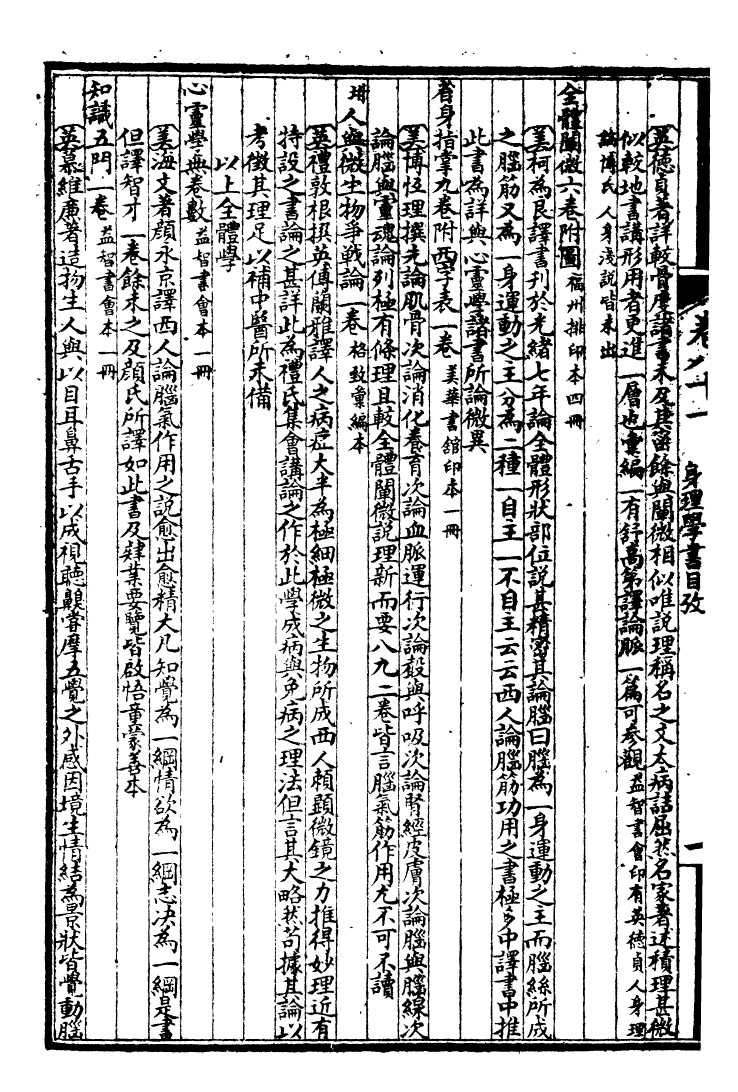 卷八十一 身理學書目攷 一
英德貞著詳較骨度諸書未及其密餘與闡微相似唯説理稱名之文太病詰屈然名家著述積理甚微
似較地書講形用者更進一層也彙編一有舒高第譯論脈一篇可參觀益智書會印有英德貞人身理
論博氏人身淺説皆未出
全體闡微六卷附圖福州排印本四冊
美柯為良譯書刊於光緒七年論全體形狀部位説甚精密其論腦曰腦為一身運動之主而腦絲所成
之腦筋又為一身運動之主分為二種一自主一不自主云云西人論腦筋功用之書極多中譯書中推
此書為詳與心靈學諸書所論微異
省身指掌九卷附西字表一卷美華書館印本一冊
美博恆理撰先論肌骨次論消化養育次論血脈運行次論殼與呼吸次論腎經皮膚次論腦與腦線次
論腦與靈魂論列極有條理且較全體闡微説理新而要八九二卷皆言腦氣筋作用尤不可不讀
增人與微生物爭戰論一卷格致彙編本
英禮敦根撰英傅蘭雅譯人之病症大半為極細極微之生物所成西人賴顯微鏡之力推得妙理近有
特設之書論之甚詳此為禮氏集會講論之作於此學成病與免病之理法但言其大略然苟據其論以
考徵其理足以補中醫所未備
以上全體學
心靈學無卷數益智書會本一冊
美海文著顏永京譯西人論腦氣作用之説愈出愈精大凡知覺為一綱情欲為一綱志決為一綱是書
但譯智才一卷餘未之及顏氏所譯如此書及肄業要覽皆啟悟童蒙善本
知識五門一卷益智書會本一冊
英慕維廉著造物生人與以目耳鼻舌手以成視聽齅嘗摩五覺之外感因境生情結為景狀皆覺動腦